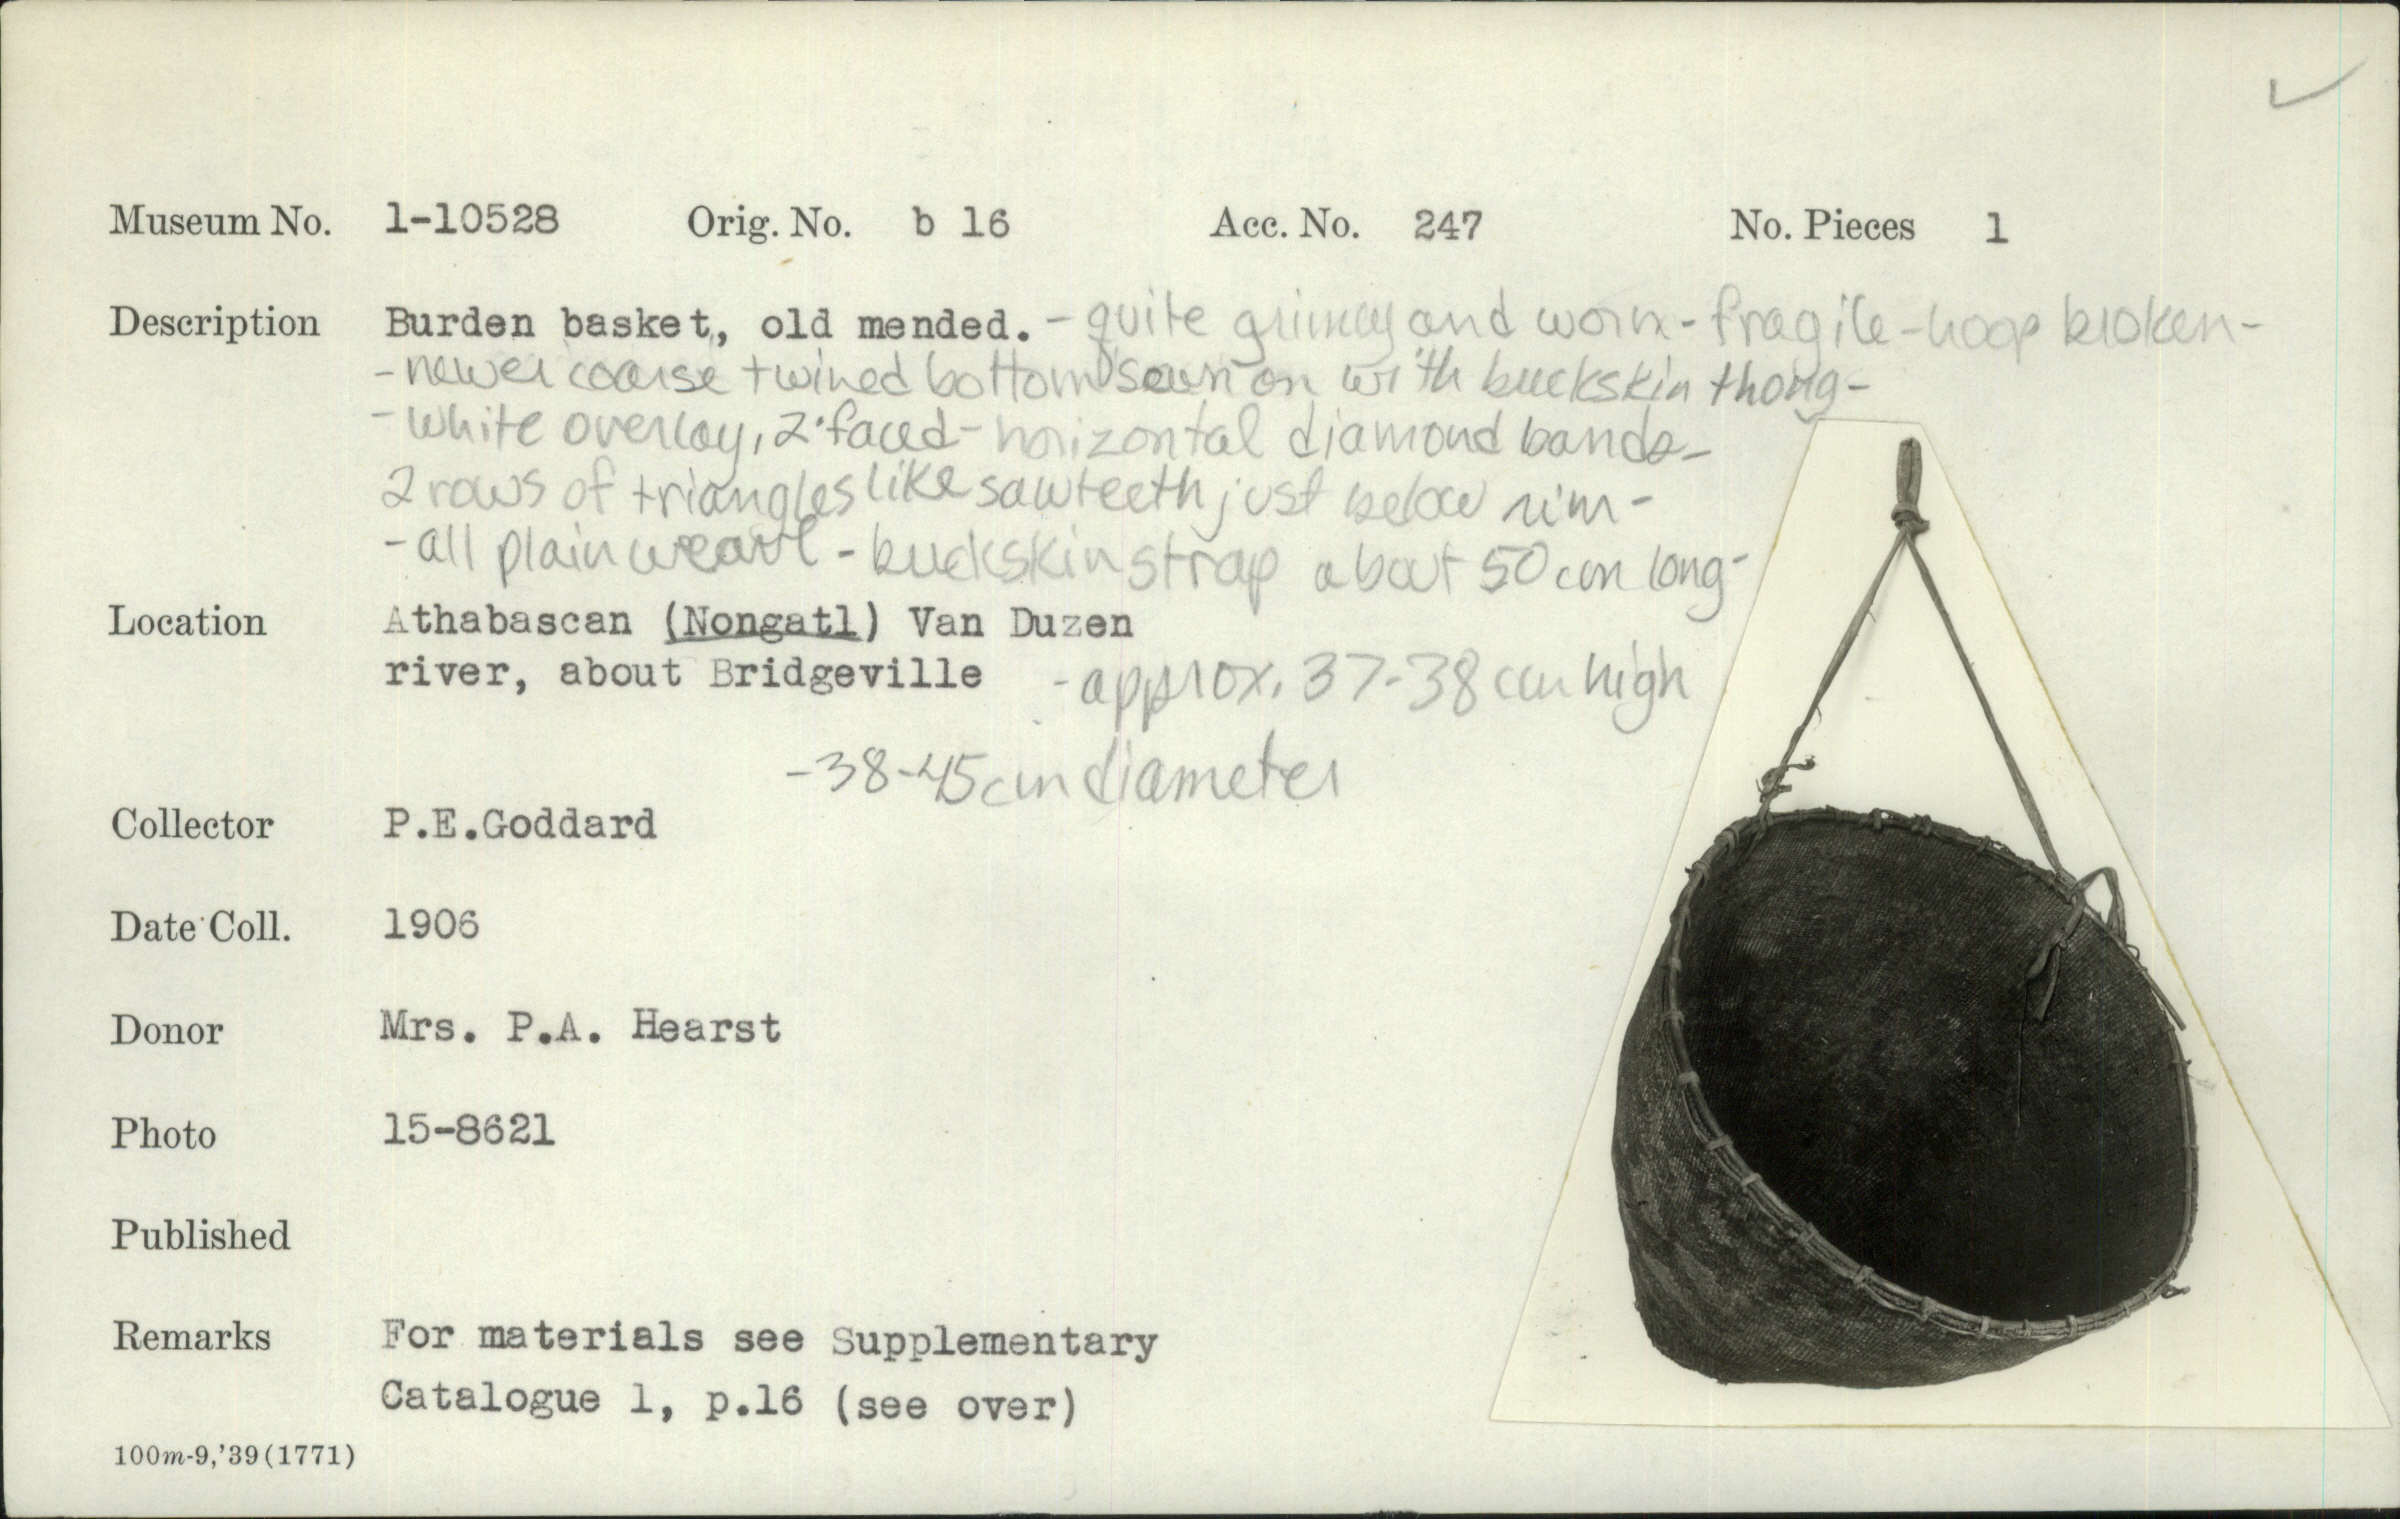 Museum No. 1-10528 Orig. No. b 16 Acc. No. 247 No. Pieces 1
Description Burden basket, old mended. - quite grimey and worn - fragile - hoop broken -
- newer coarse twined bottom sewn on with buckskin thong -
- white overlay, 2-faced - horizontal diamond bands -
2 rows of triangles like sawteeth just below rim -
- all plain weave - buckskin strap about 50 cm long -
Location Athabascan (Nongatl) Van Duzen
river, about Bridgeville - approx. 37-38 cm high
- 38-45 cm diameter
Collector P.E.Goddard
Date Coll. 1906
Donor Mrs. P.A. Hearst
Photo 15-8621
Published
Remarks For materials see Supplementary
Catalogue 1, p.16 (see over)
100m-9,'39(1771)